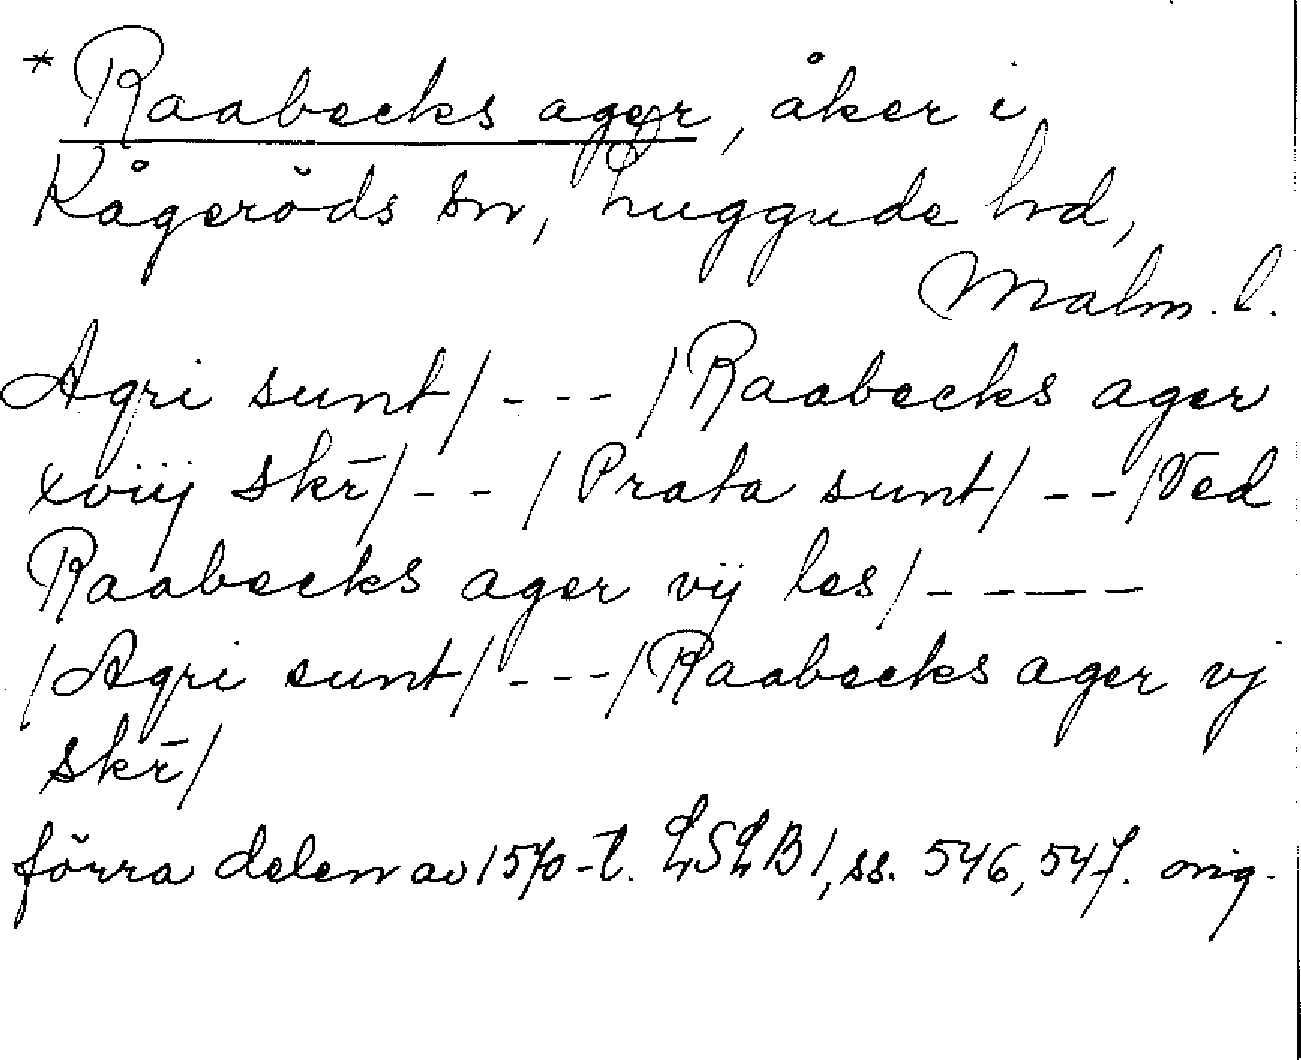 * Raabecks ager, åker i
Kågeröds sn, Luggude hd,
Malm. l.
Agri sunt/ - - - /Raabecks ager
xviij skr̄/ - - / Prata sunt/ - - /Ved
Raabecks ager vij les/ - - - - -
/Agri sunt/ - - - /Raabecks ager vj
skr̄/
förra delen av 1570-t. LSLB 1, ss. 546, 547. orig.